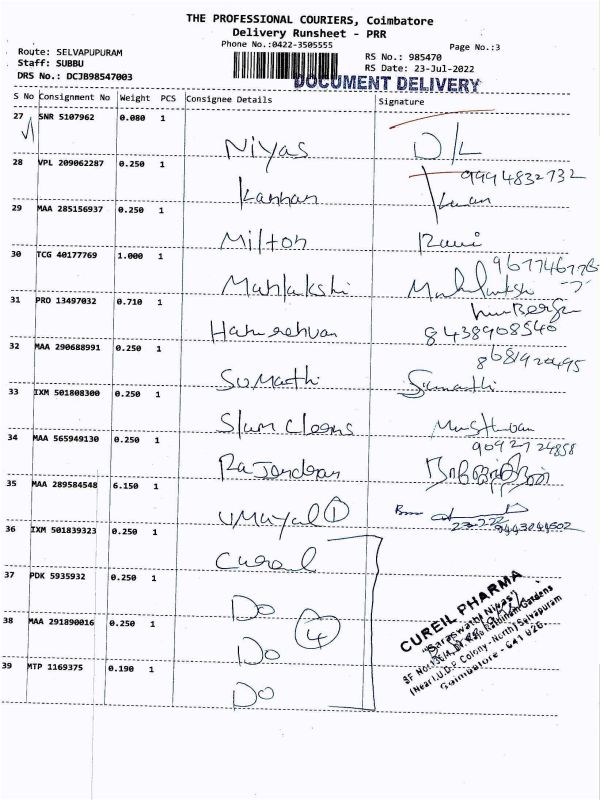 THE PROFESSIONAL COURIERS, Coimbatore
Delivery Runsheet - PRR
Phone No.:0422-3505555
Page No.:3
Route: SELVAPUPURAM
Staff: SUBBU
DRS No.: DCJB98547003
RS No.: 985470
RS Date: 23-Jul-2022
DOCUMENT DELIVERY
S No Consignment No Weight PCS Consignee Details Signature
27 SNR 5107962 0.080 1
Niyas D/L
28 VPL 209062287 0.250 1
9994832732
Kannan
29 MAA 285156937 0.250 1
Milton Ravi
30 TCG 40177769 1.000 1
Mahlakshi
31 PRO 13497032 0.710 1
8438908540
32 MAA 290688991 0.250 1
8681920495
Sumathi Sumathi
33 IXM 501808300 0.250 1
34 MAA 565949130 0.250 1
9092724858
35 MAA 289584548 6.150 1
Umayal 1
36 IXM 501839323 0.250 1
Cureil
37 PDK 5935932 0.250 1
Do
4
38 MAA 291890016 0.250 1
Do
39 MTP 1169375 0.190 1
Do
CUREIL PHARMA
"Saraswathi Nivas"
(Near I.U.D.P. Colony - North) Selvapuram
Coimbatore - 641 026.